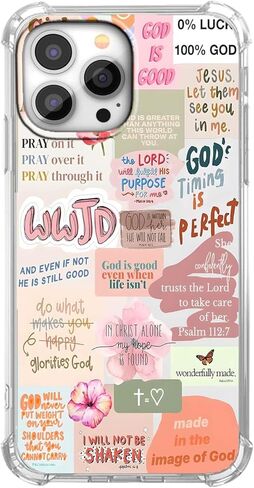 GOD
IS
GOOD
0% LUCK
100% GOD
JESUS.
Let them
see you
in me.
PRAY on it
PRAY over it
PRAY through it
GOD IS GREATER
THAN ANYTHING
THIS WORLD
CAN THROW AT
YOU.
the LORD
will fulfill HIS
PURPOSE
FOR me
GOD's
Timing
is
PERFECT
WWJD
GOD IS WITHIN
her
SHE WILL NOT FAIL
AND EVEN IF NOT
HE IS STILL GOOD
God is good
even when
life isn't
She
confidently
trusts the Lord
to take care
of her.
Psalm 112:7
do what
makes you
happy
glorifies God
IN CHRIST ALONE
my hope
IS FOUND
wonderfully made.
GOD WILL
never
PUT WEIGHT
ON YOUR
SHOULDERS
THAT YOU
CANNOT CARRY
✝=♡
I WILL NOT BE
SHAKEN
made
in the
image of God